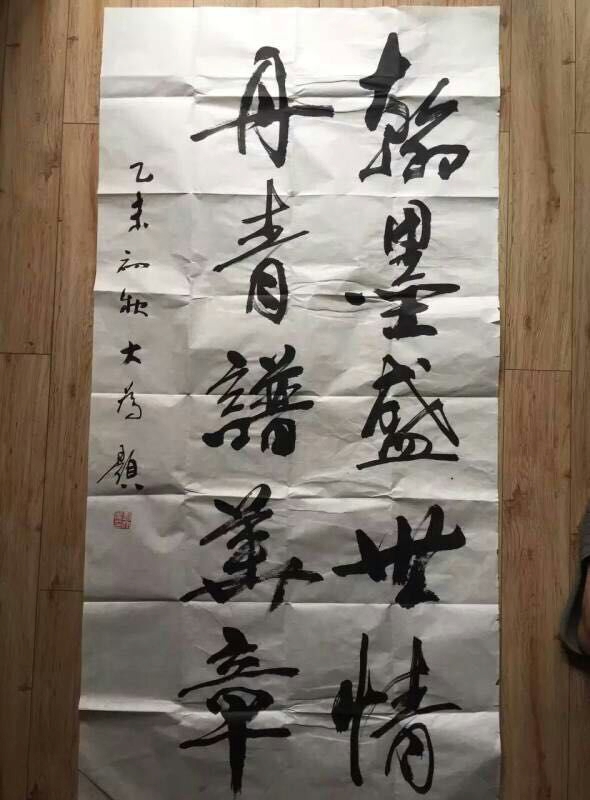 翰墨盛世情
丹青譜華章
乙未初秋大為題